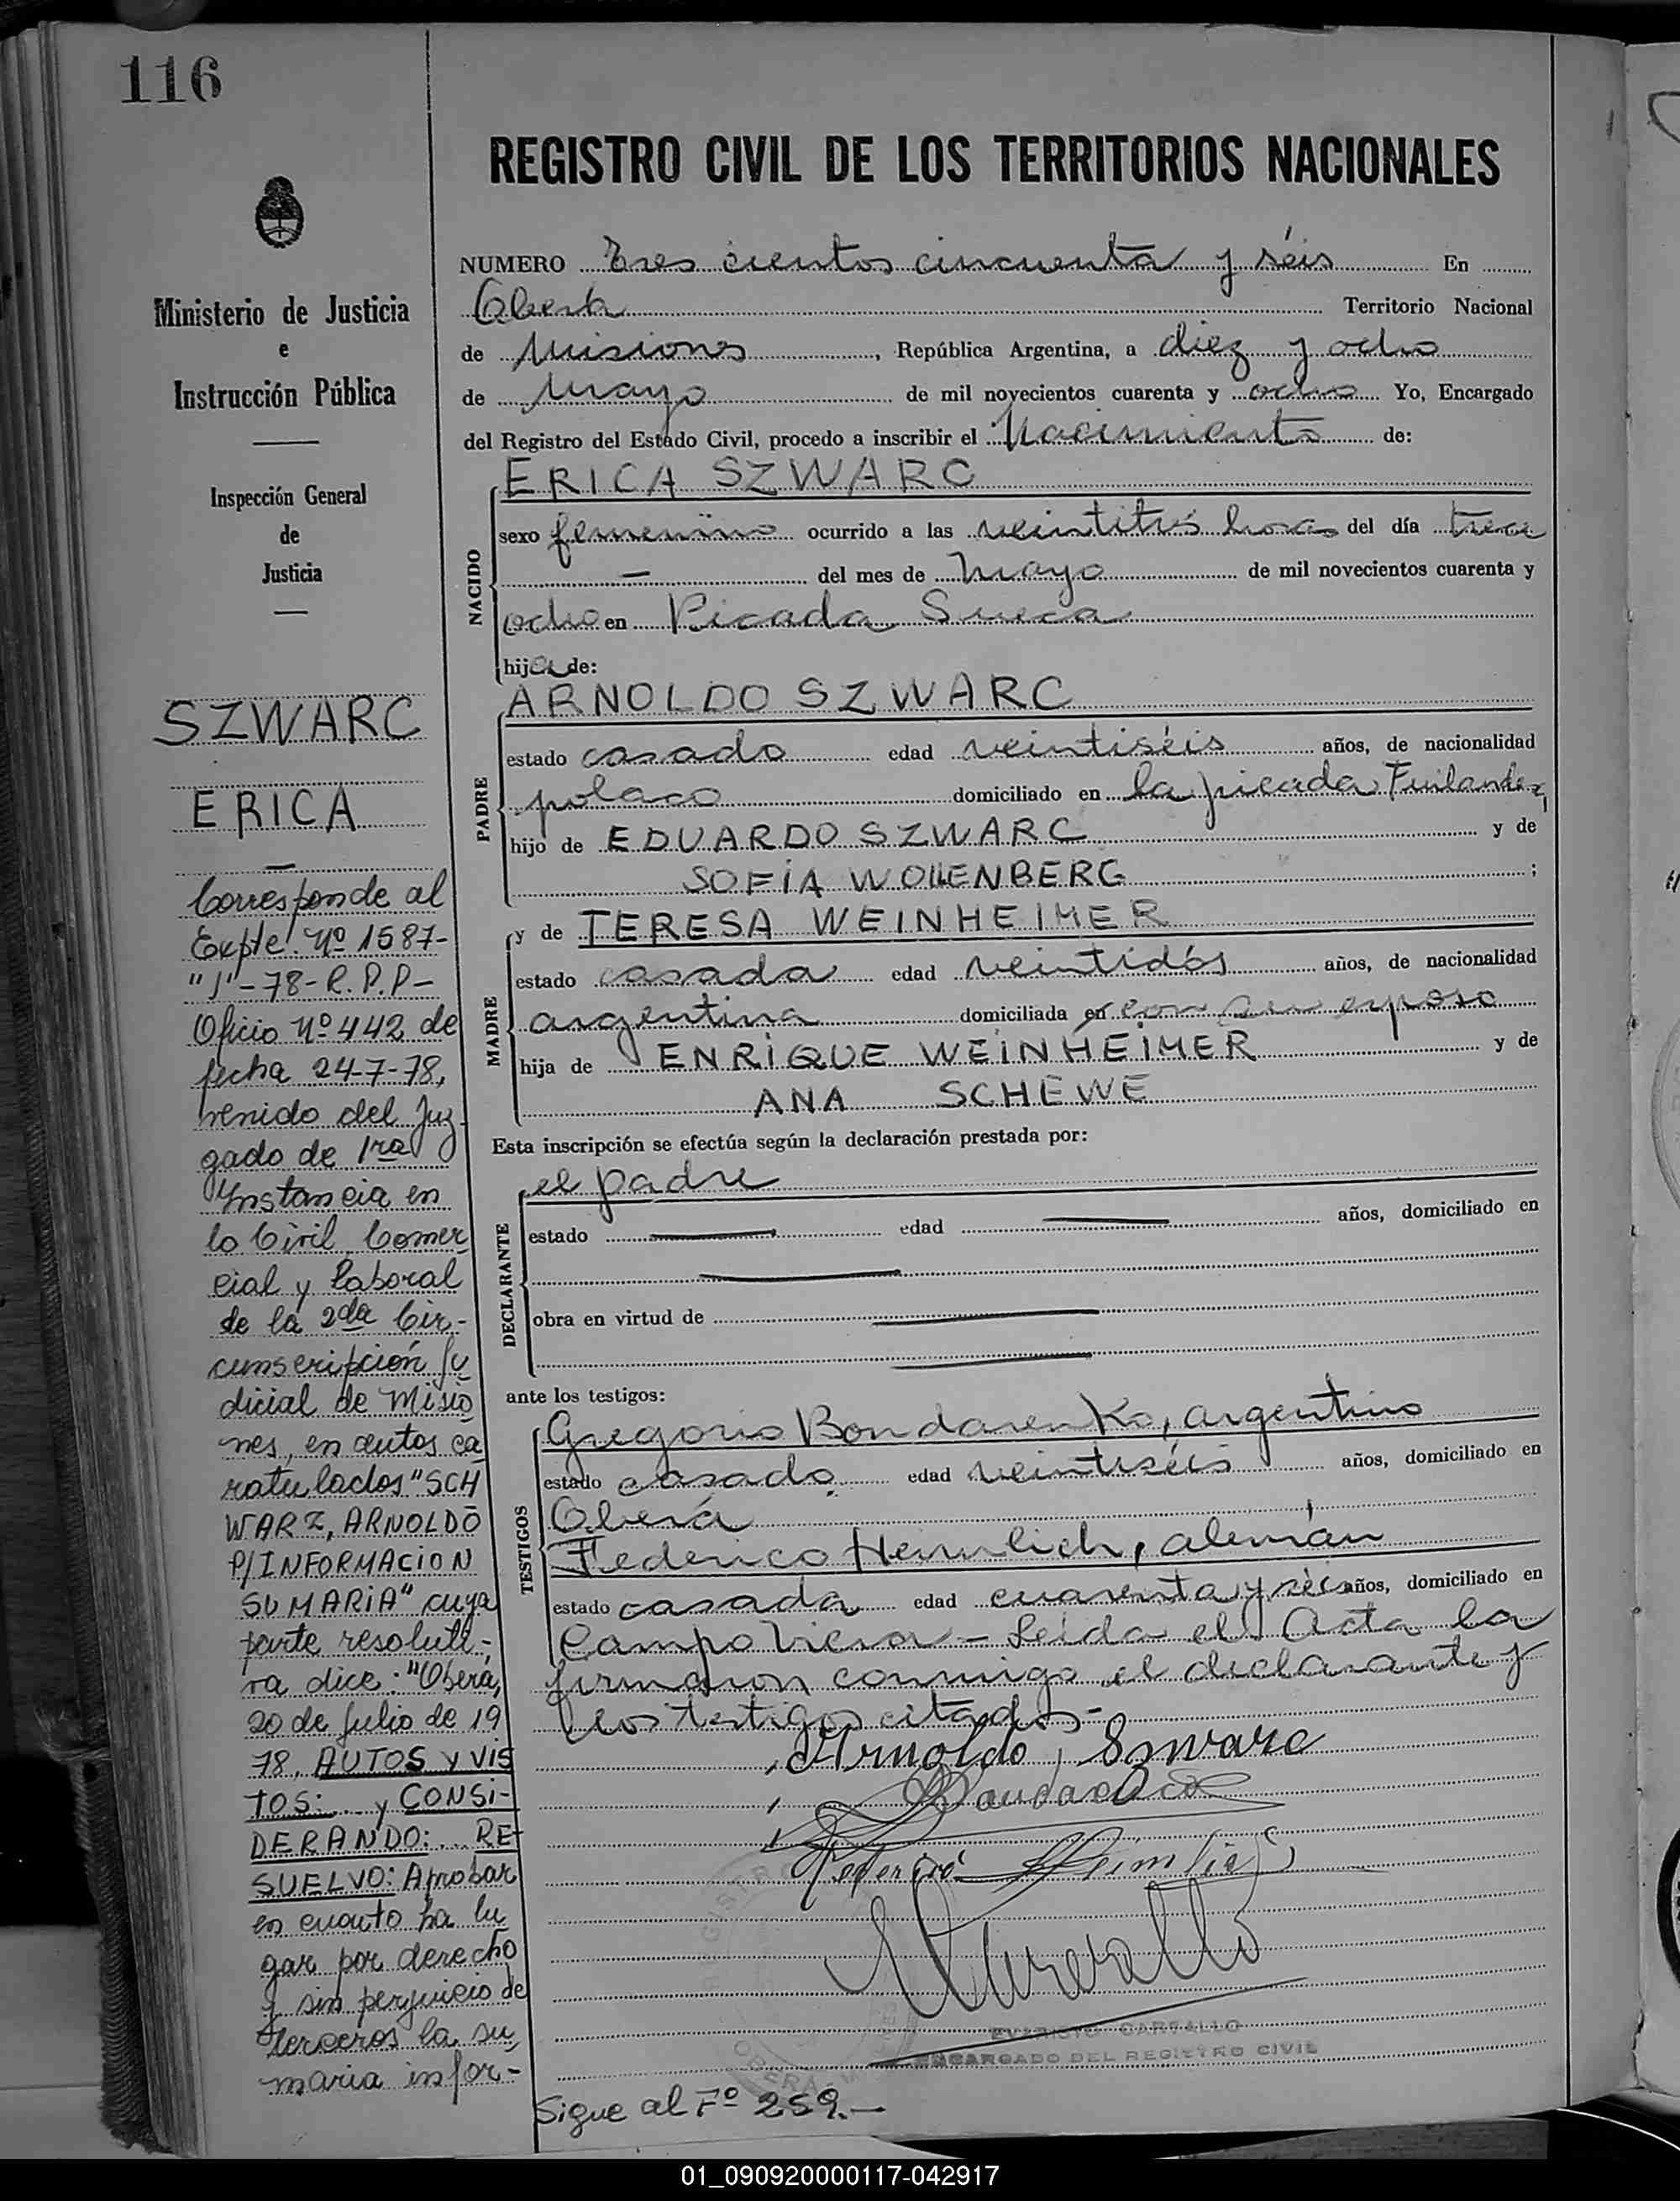 116
REGISTRO CIVIL DE LOS TERRITORIOS NACIONALES
Ministerio de Justicia
e
Instrucción Pública
Inspección General
de
Justicia
SZWARC
ERICA
Corresponde al
Expte. Nº 1587-
"J"-78-R.P.P-
Oficio Nº 442 de
fecha 24-7-78,
venido del Juz
gado de 1ra
Instancia en
lo Civil Comer
cial y Laboral
de la 2da Cir-
cunscripción Ju
dicial de Misio
nes, en autos ca
ratulados "SCH
WARZ, ARNOLDO
P/INFORMACION
SUMARIA" cuya
parte resoluti-
va dice: "Oberá,
20 de Julio de 19
78, AUTOS Y VIS
TOS:... y CONSI-
DERANDO:... RE-
SUELVO: Aprobar
en cuanto ha lu
gar por derecho
y sin perjuicio de
terceros la su
maria infor-
NUMERO Tres cientos cincuenta y séis En
Oberá Territorio Nacional
de Misiones, República Argentina, a diez y ocho
de mayo de mil novecientos cuarenta y ocho Yo, Encargado
del Registro del Estado Civil, procedo a inscribir el Nacimiento de:
NACIDO
ERICA SZWARC
sexo femenino ocurrido a las veintitrés horas del día trece
— del mes de mayo de mil novecientos cuarenta y
ocho en Picada Sueca
hija de:
PADRE
ARNOLDO SZWARC
estado casado edad veintiséis años, de nacionalidad
polaco domiciliado en la picada Finlandeza
hijo de EDUARDO SZWARC y de
SOFÍA WOLLENBERG ;
MADRE
y de TERESA WEINHEIMER
estado casada edad veintidós años, de nacionalidad
argentina domiciliada en con su esposo
hija de ENRIQUE WEINHEIMER y de
ANA SCHEWE
Esta inscripción se efectúa según la declaración prestada por:
DECLARANTE
el padre
estado — edad — años, domiciliado en
—
obra en virtud de —
—
ante los testigos:
TESTIGOS
Gregorio Bondarenko, argentino
estado casado edad veintiséis años, domiciliado en
Oberá
Federico Heimlich, alemán
estado casada edad cuarenta y séis años, domiciliado en
Campo Viera - Leída el Acta la
firmaron conmigo el declarante y
los testigos citados-
Arnoldo Szwarc
Federico Heimlich
EVARISTO CARVALLO
ENCARGADO DEL REGISTRO CIVIL
Sigue al Fº 259.—
01_090920000117-042917